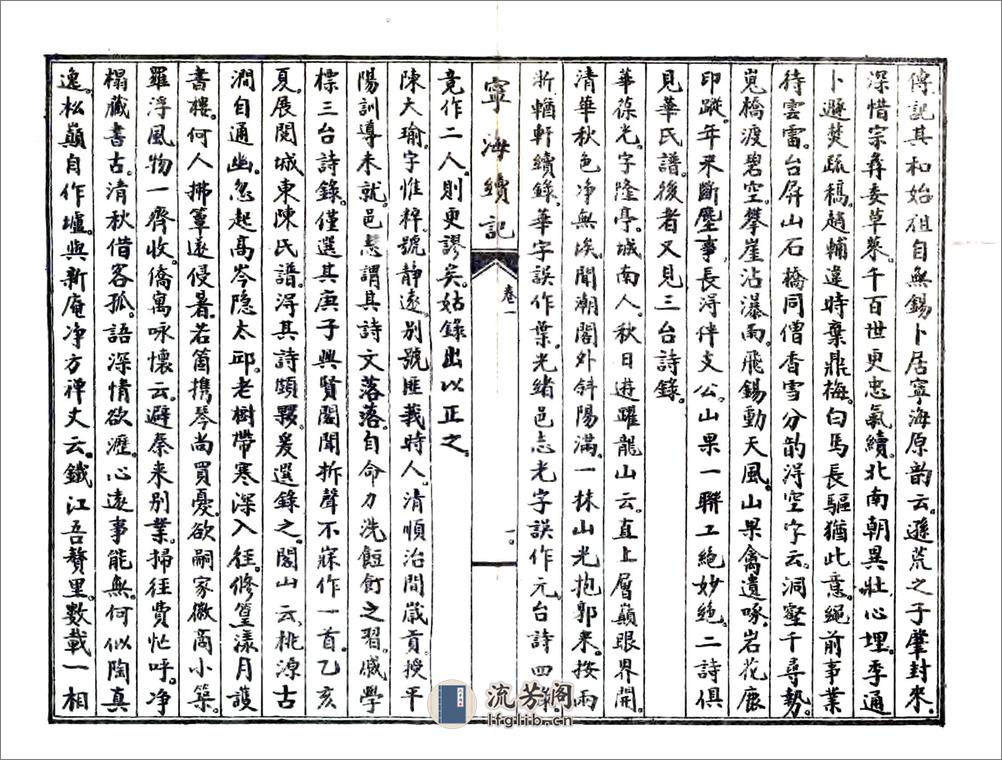 傳記其和始祖自無錫卜居寧海原韵云遯荒之子肇封來
深惜宗彝委草萊千百世更忠氣續北南朝異壯心埋季通
卜遯焚疏稿趙輔違時棄鼎梅白馬長驅猶此意繩前事業
待雲雷台屏山石橋同僧香雪分韵得空字云洞壑千尋勢
嵬橋渡碧空攀崖沾瀑雨飛錫動天風山果禽遺啄岩花鹿
印蹤年來斷塵事長得伴支公山果一聯工絕妙絕二詩俱
見華氏譜後者又見三台詩錄
華葆光字隆亭城南人秋日遊躍龍山云直上層巔眼界開
清華秋色净無埃聞潮閣外斜陽滿一抹山光抱郭來按兩
浙輶軒續錄華字誤作葉光緒邑志光字誤作元台詩四
寧海續記
卷一
一
竟作二人則更謬矣姑錄出以正之
陳大瑜字惟粹號静遠别號匪莪時人清順治間歲貢授平
陽訓導未就邑志謂其詩文落落自命力洗餖飣之習戚學
標三台詩錄僅選其庚子興賢閣聞柝聲不寐作一首乙亥
夏展閱城東陳氏譜得其詩頗夥爰選錄之閬山云桃源古
澗自通幽忽起高岑隱太邱老樹帶寒深入徑修篁漾月護
書樓何人拂簟遠侵暑若箇携琴尚買憂欲嗣家徽商小築
羅浮風物一齊收僑寓咏懷云避秦来别業掃徑費忙呼净
榻藏書古清秋借客孤語深情欲瀝心遠事能無何似陶真
逸松巔自作壚與新庵净方禪丈云鐵江吾贅里數載一相
流芳阁
lfglib.cn